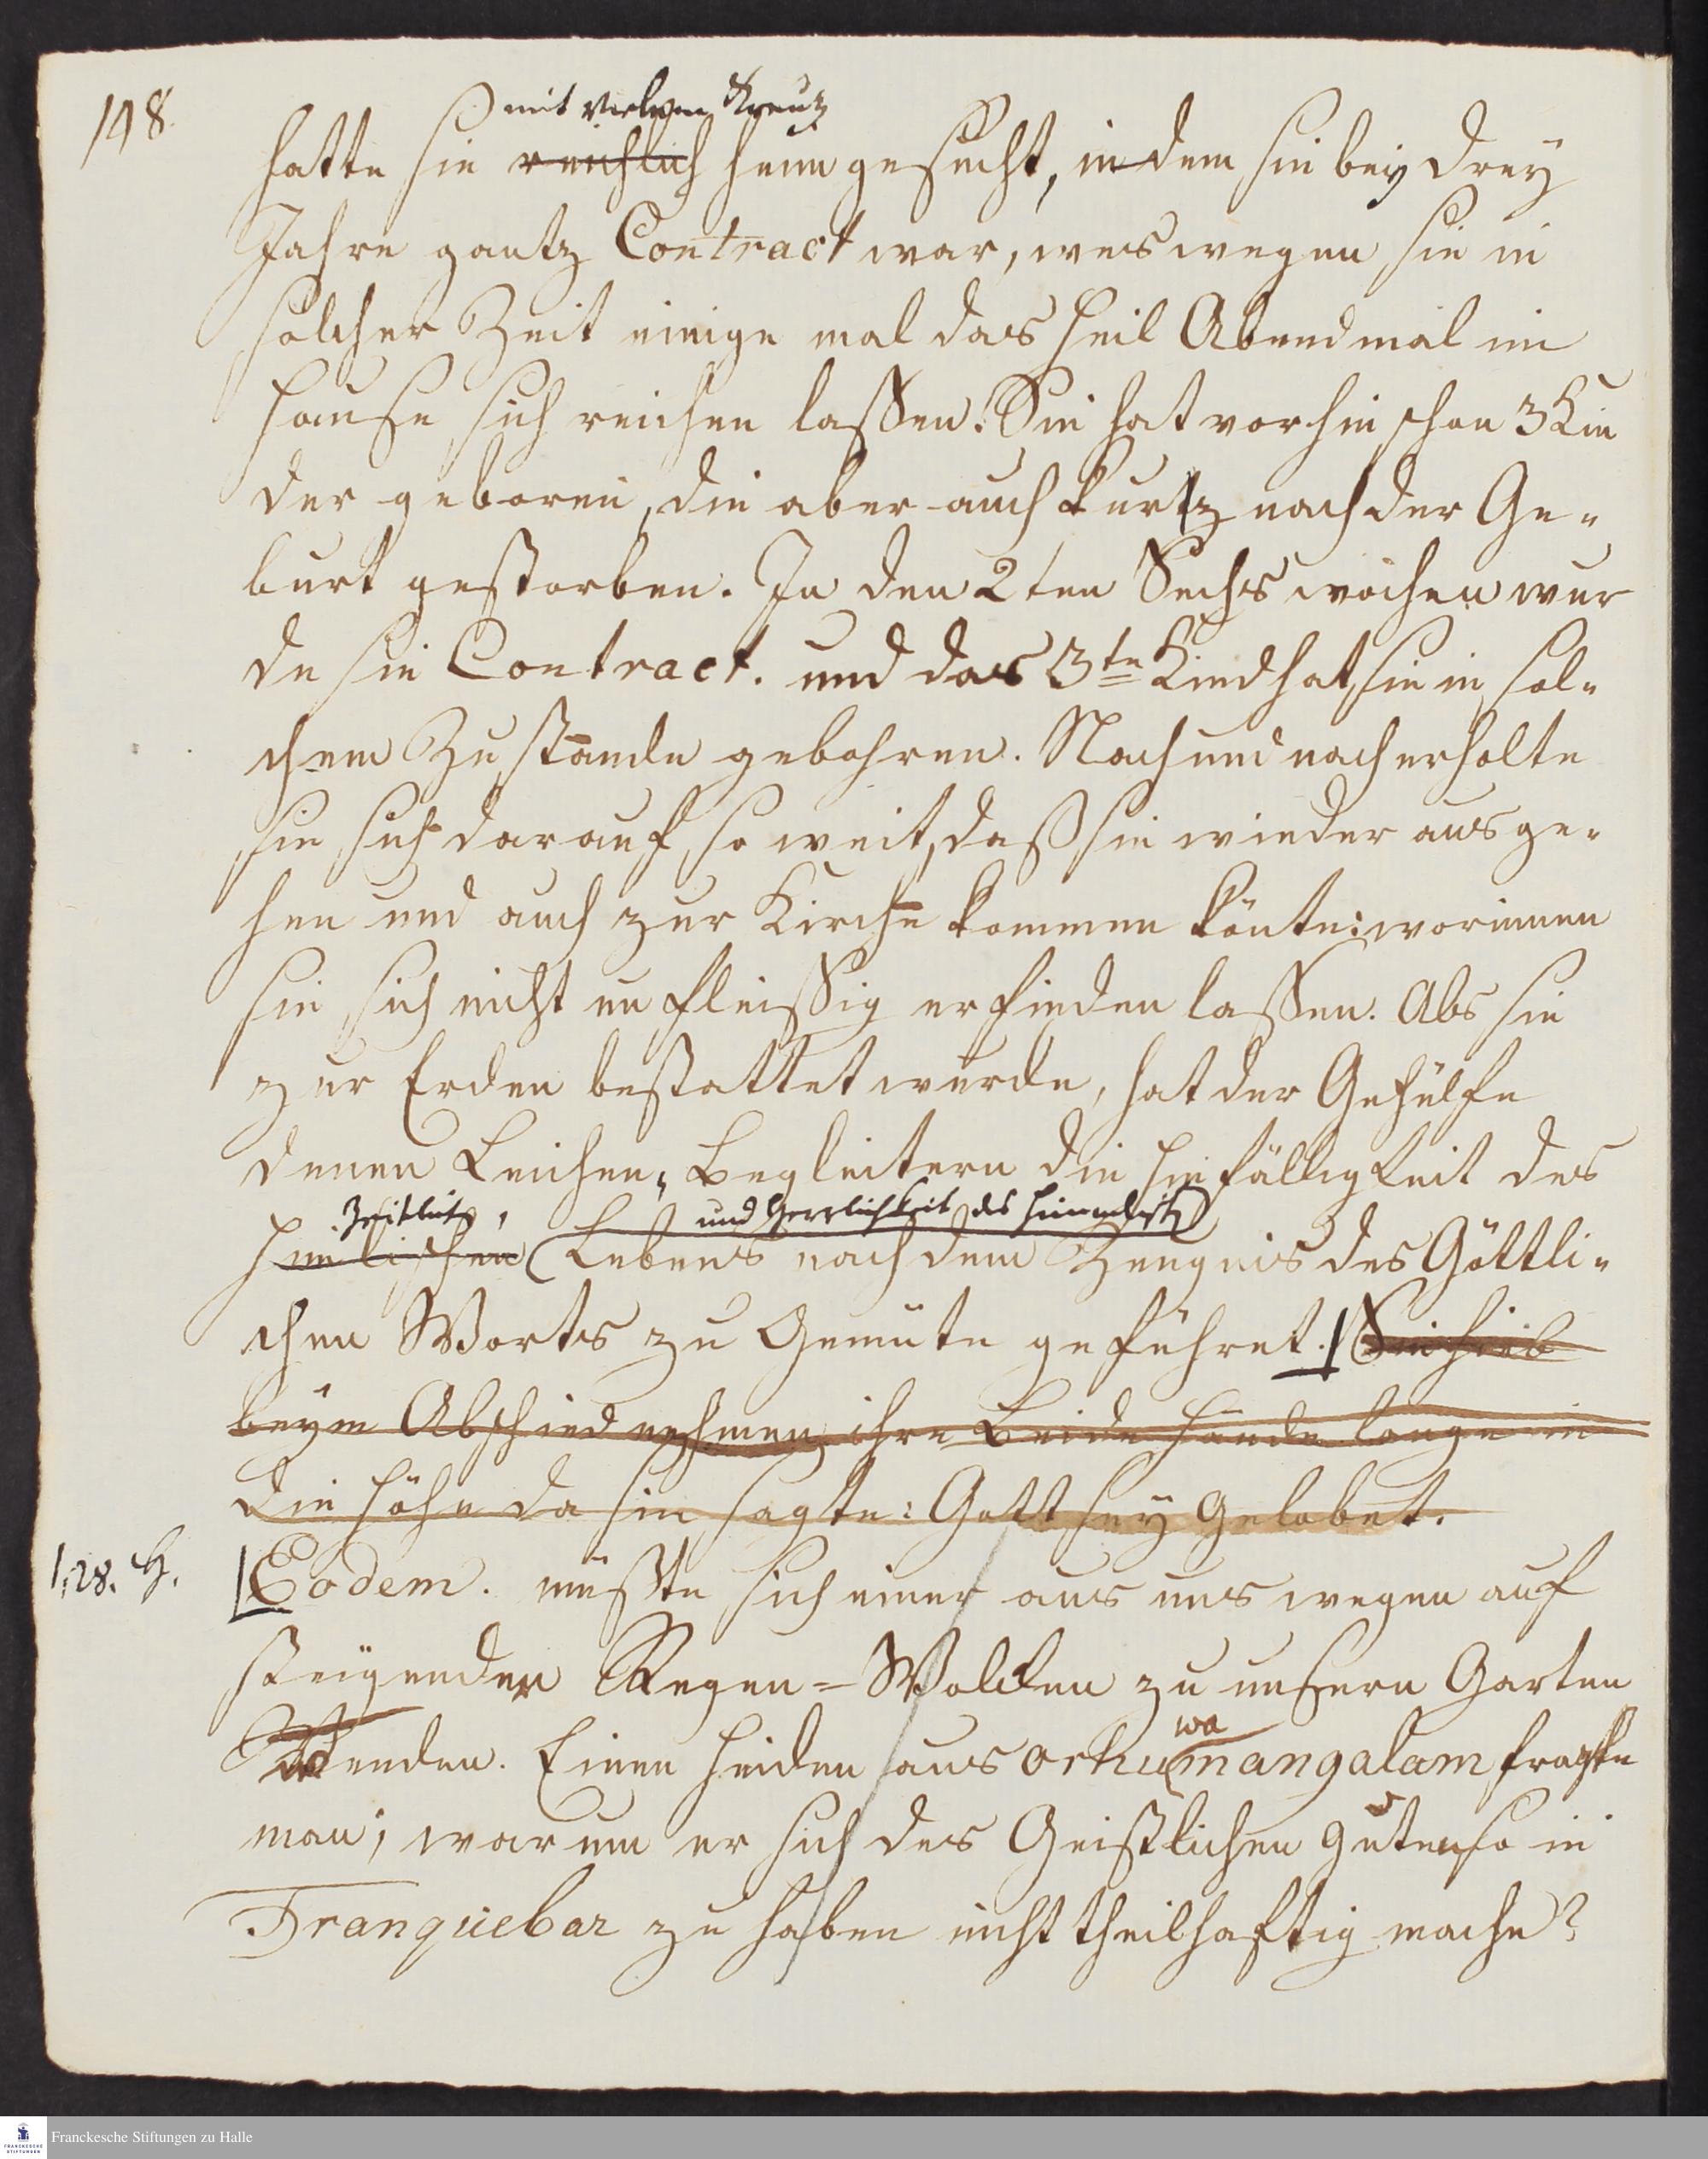 148.
mit vielem Kreutz
hatte sie reichlich heimgesucht, in dem sie bey drey
Jahre gantz Contract war, weswegen sie in
solcher Zeit einige mal das heil Abendmal im
Hause sich reichen laßen. Sie hat vorhin schon 3 Kin
der geboren, die aber auch kurtz nach der Ge-
burt gestorben. In den 2ten Sechswochen wur
de sie Contract. und das 3te Kind hat sie in sol-
chem Zustande gebohren. Nach und nach erholte
sie sich darauf so weit, daß sie wieder ausge-
hen und auch zur Kirche kommen konte: worinnen
sie sich nicht unfleißig erfinden laßen. Als sie
zur Erden bestattet wurde, hat der Gehülfe
denen Leichen-Begleitern die Hinfälligkeit des
Zeitlichen, und Herrlichkeit des himmlischen
Lebens nach dem Zeugnis des Göttli-
chen Worts zu Gemüte geführet. Sie hieb
beym Abschiednehmen ihre beide Hände lange in
die Höhe da sie sagte: Gott sey gelobet.
1,28. H.
Eodem. müßte sich einer aus uns wegen auf
steigender Regen-Wolcken zu unsern Garten
Wenden. Einen Heiden aus Orhuwamangalam fragte
man, warum er sich des Geistlichen guten so in
Tranquebar zu haben nicht theilhaftig mache?
Franckesche Stiftungen zu Halle